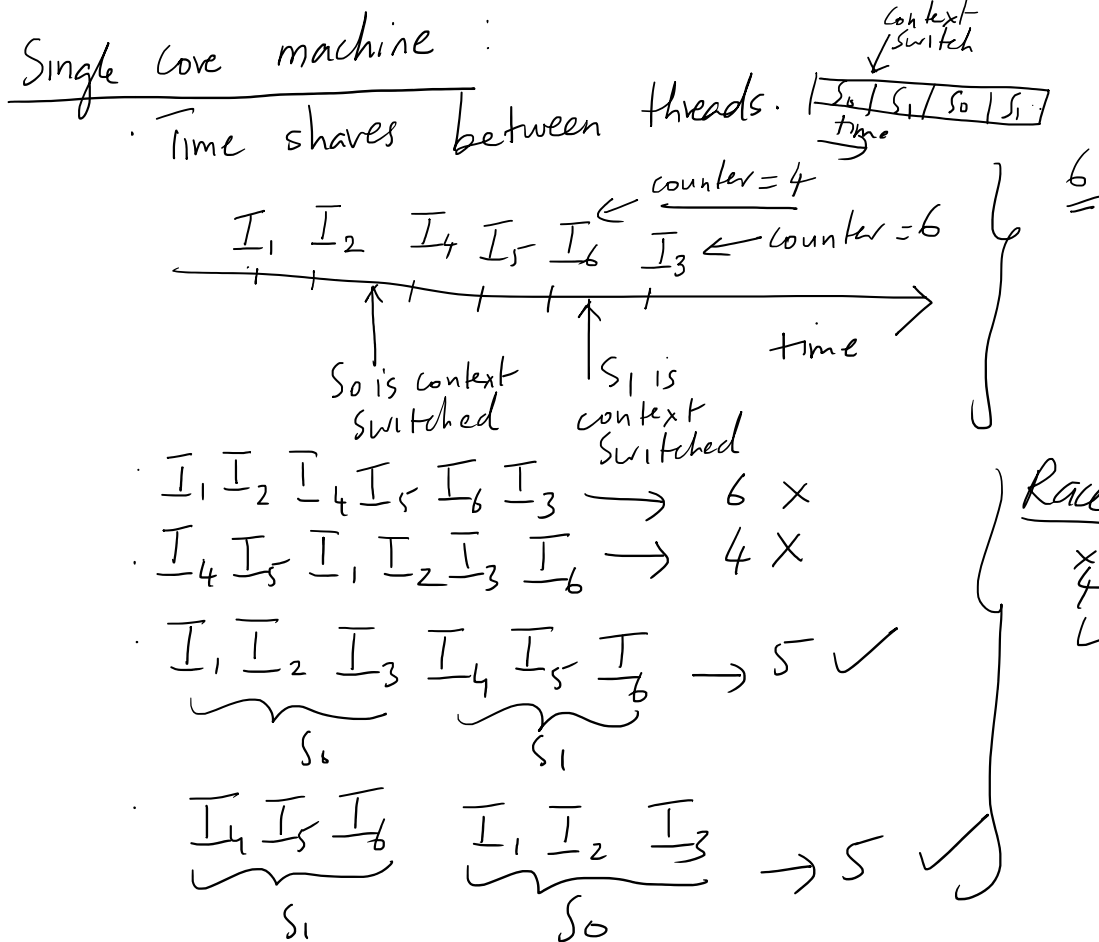 Single core machine :
context
switch
· Time shares between threads.
S0 | S1 | S0 | S1
time
counter = 4
6
I1 I2 I4 I5 I6
I3 ← counter = 6
time
S0 is context
switched
S1 is
context
switched
· I1 I2 I4 I5 I6 I3 → 6 X
Race
· I4 I5 I1 I2 I3 I6 → 4 X
x
4
· I1 I2 I3 I4 I5 I6 → 5 ✓
S0 S1
· I4 I5 I6 I1 I2 I3 → 5 ✓
S1 S0